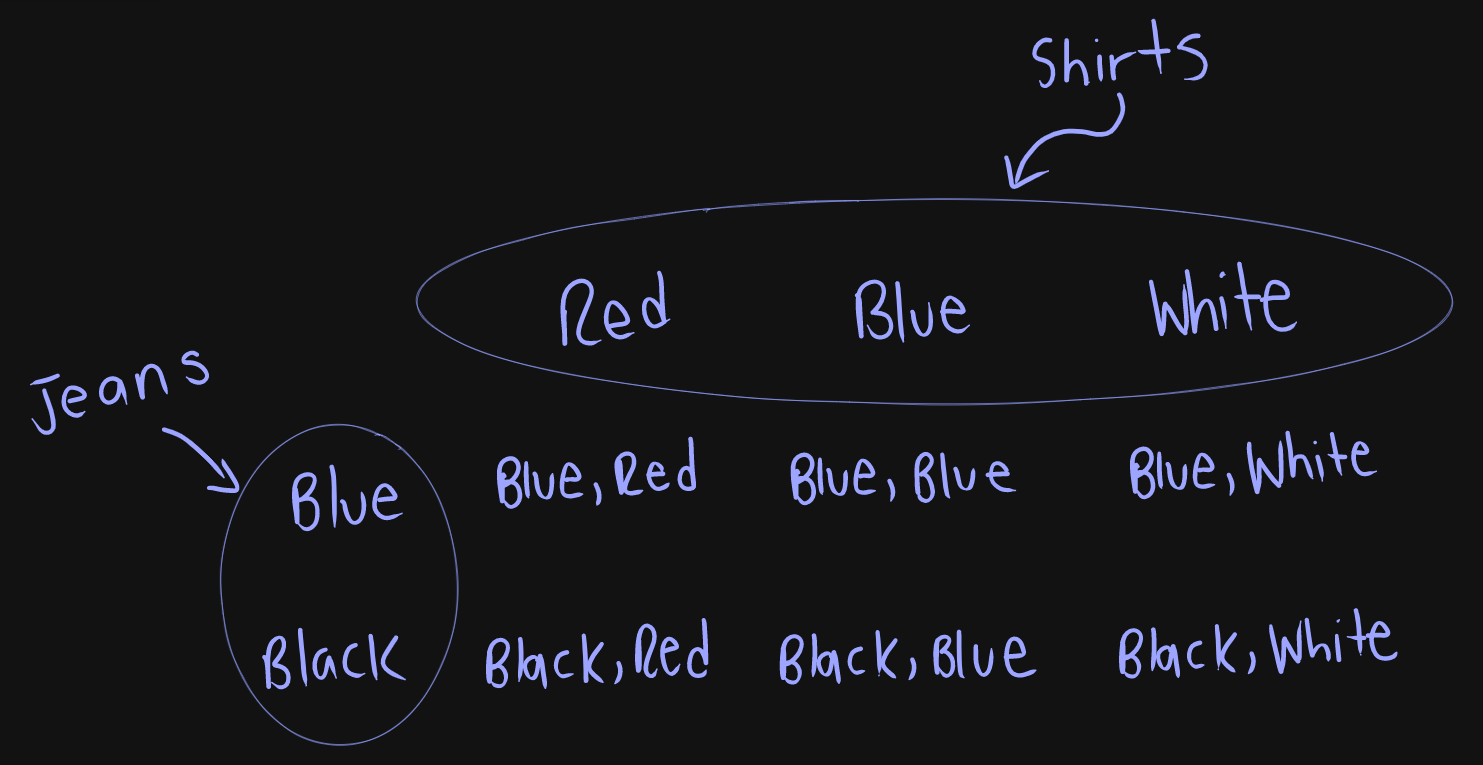 Shirts
Red Blue White
Jeans
Blue Blue, Red Blue, Blue Blue, White
Black Black, Red Black, Blue Black, White